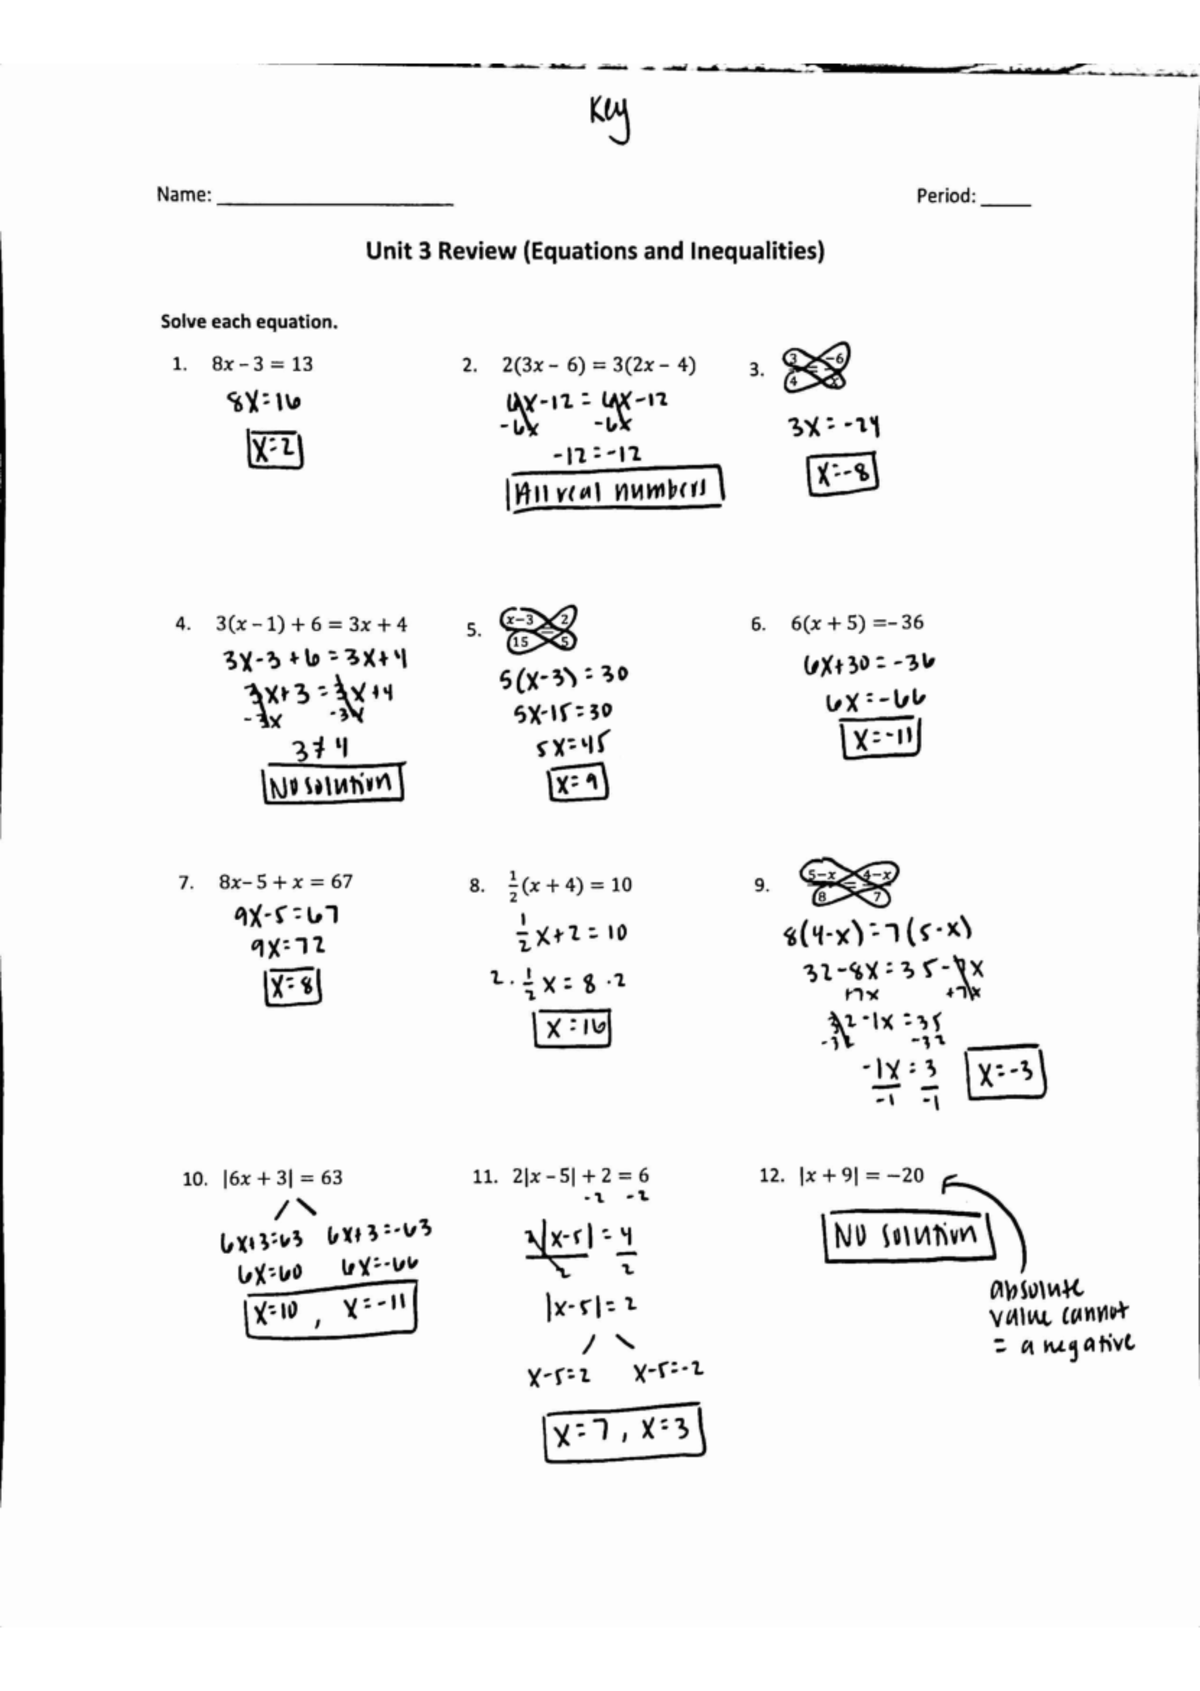 Key
Name: ____________________ Period: _____
Unit 3 Review (Equations and Inequalities)
Solve each equation.
1. 8x – 3 = 13
8x=16
x=2
2. 2(3x – 6) = 3(2x – 4)
6x-12 = 6x-12
-6x -6x
-12=-12
All real numbers
3. 3/4 = -6/x
3x = -24
x=-8
4. 3(x – 1) + 6 = 3x + 4
3x-3+6=3x+4
3x+3=3x+4
-3x -3x
3≠4
No solution
5. x–3/15 = 2/5
5(x-3)=30
5x-15=30
5x=45
x=9
6. 6(x + 5) =– 36
6x+30=-36
6x=-66
x=-11
7. 8x– 5 + x = 67
9x-5=67
9x=72
x=8
8. 1/2(x + 4) = 10
1/2x+2=10
2·1/2x=8·2
x=16
9. 5–x/8 = 4–x/7
8(4-x)=7(5-x)
32-8x=35-7x
+7x +7x
32-1x=35
-32 -32
-1x=3
-1 -1
x=-3
10. |6x + 3| = 63
6x+3=63 6x+3=-63
6x=60 6x=-66
x=10, x=-11
11. 2|x – 5| + 2 = 6
-2 -2
2|x-5|=4
2 2
|x-5|=2
x-5=2 x-5=-2
x=7, x=3
12. |x + 9| = −20
No solution
absolute
value cannot
= a negative